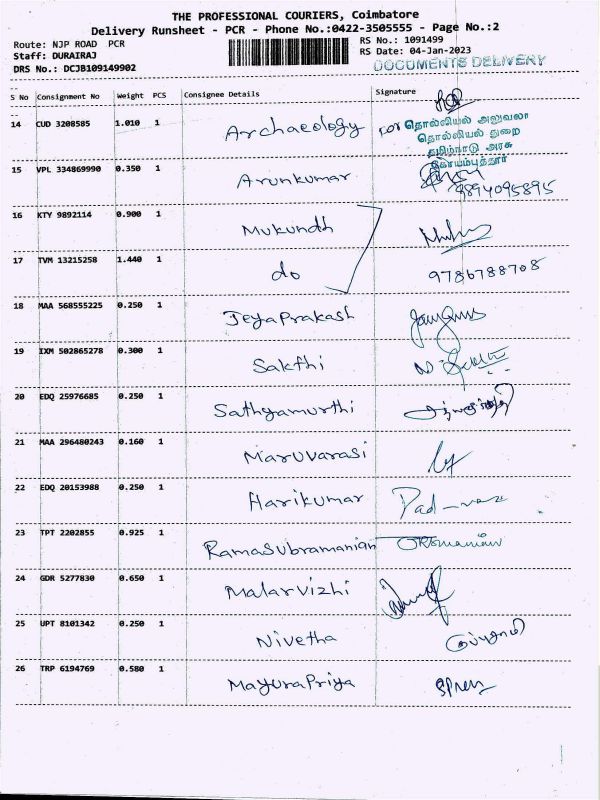 THE PROFESSIONAL COURIERS, Coimbatore
Delivery Runsheet - PCR - Phone No.:0422-3505555 - Page No.:2
Route: NJP ROAD PCR
RS No.: 1091499
Staff: DURAIRAJ
RS Date: 04-Jan-2023
DRS No.: DCJB109149902
DOCUMENTS DELIVERY
S No Consignment No Weight PCS Consignee Details Signature
14 CUD 3208585 1.010 1 Archaeology for தொல்லியல் அலுவலர்
தொல்லியல் துறை
தமிழ்நாடு அரசு
கோயம்புத்தூர்
15 VPL 334869990 0.350 1 Arunkumar
9894095895
16 KTY 9892114 0.900 1 Mukundh
17 TVM 13215258 1.440 1 do 9786788708
18 MAA 568555225 0.250 1 JeyaPrakash
19 IXM 502865278 0.300 1 Sakthi
20 EDQ 25976685 0.250 1 Sathyamurthi
21 MAA 296480243 0.160 1 Maruvarasi
22 EDQ 20153988 0.250 1 Harikumar
23 TPT 2202855 0.925 1 RamaSubramanian
24 GDR 5277830 0.650 1 Malarvizhi
25 UPT 8101342 0.250 1 Nivetha
26 TRP 6194769 0.580 1 MayuraPriya